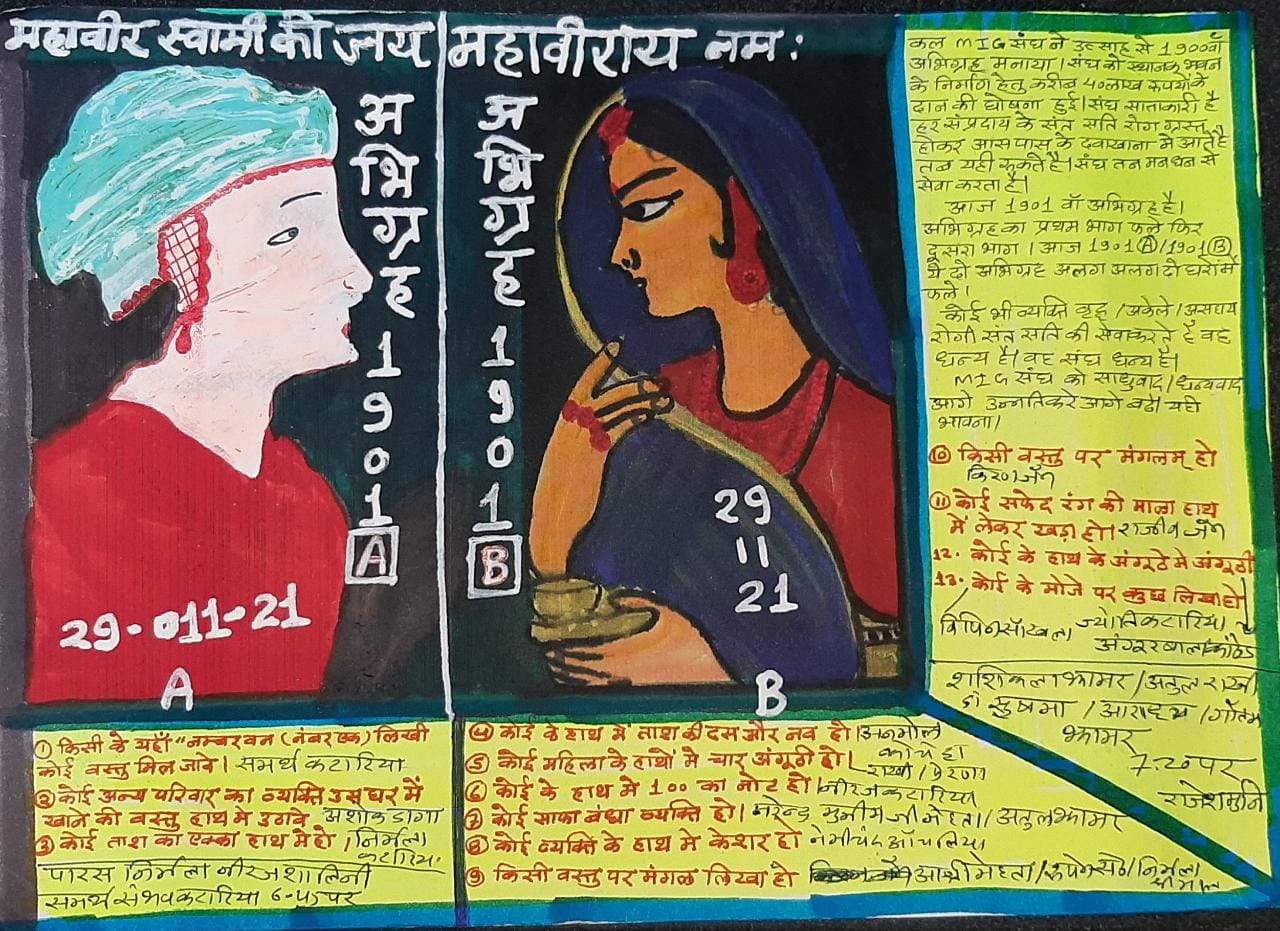 महावीर स्वामी की जय
महावीराय नमः
अ
भि
ग्र
ह
1
9
0
1
A
29-011-21
A
अ
भि
ग्र
ह
1
9
0
1
B
29
11
21
B
कल MIG संघ ने उत्साह से 1900वाँ
अभिग्रह मनाया। संघ को स्थानक भवन
के निर्माण हेतु करीब 40लाख रूपयों के
दान की घोषणा हुई। संघ साताकारी है
हर संप्रदाय के संत सति रोग ग्रस्त
होकर आसपास के दवाखाना में आते है
तब यही रूकते है। संघ तन मन धन से
सेवा करता है।
आज 1901 वाँ अभिग्रह है।
अभिग्रह का प्रथम भाग फले फिर
दूसरा भाग। आज 1901 A / 1901 B
ये दो अभिग्रह अलग अलग दो घरों में
फले।
कोई भी व्यक्ति वृद्ध / अकेले / असहाय
रोगी संत सति की सेवा करते है वह
धन्य है। वह संघ धन्य है।
MIG संघ को साधुवाद / धन्यवाद
आगे उन्नति करे आगे बढे यही
भावना।
10 किसी वस्तु पर मंगलम् हो
किरण जैन
11 कोई सफेद रंग की माला हाथ
में लेकर खड़ा हो। राजीव जैन
12. कोई के हाथ के अंगूठे में अंगूठी
13. कोई के मोजे पर कुछ लिखा हो
विपिन सॉखला ज्योति कटारिया
अंगूरबाला
शशिकला झामर / अतुल राखी
सुषमा / आराध्य / गौतम
झामर
7.20 पर
राजेशमुनि
1 किसी के यहाँ "नम्बर वन (नंबर एक) लिखी
कोई वस्तु मिल जावे। समर्थ कटारिया
2 कोई अन्य परिवार का व्यक्ति उस घर में
खाने की वस्तु हाथ में उगवे अशोक डागा
3 कोई ताश का एक्का हाथ में हो। निर्मला
कटारिया
पारस निर्मला नीरज शालिनी
समर्थ संभव कटारिया 6-45 पर
4 कोई के हाथ में ताश की दस और नव हो। अनमोल
5 कोई महिला के हाथों में चार अंगूठी हो।
राखी / प्रेरणा
6 कोई के हाथ में 100 का नोट हो। नीरज कटारिया
7 कोई साफा बंधा व्यक्ति हो। नरेन्द्र मुनीम जी मेहता / अतुल झामर
8 कोई व्यक्ति के हाथ में केशर हो नेमीचंद ऑचलिया
9 किसी वस्तु पर मंगल लिखा हो मेहता / निर्मला